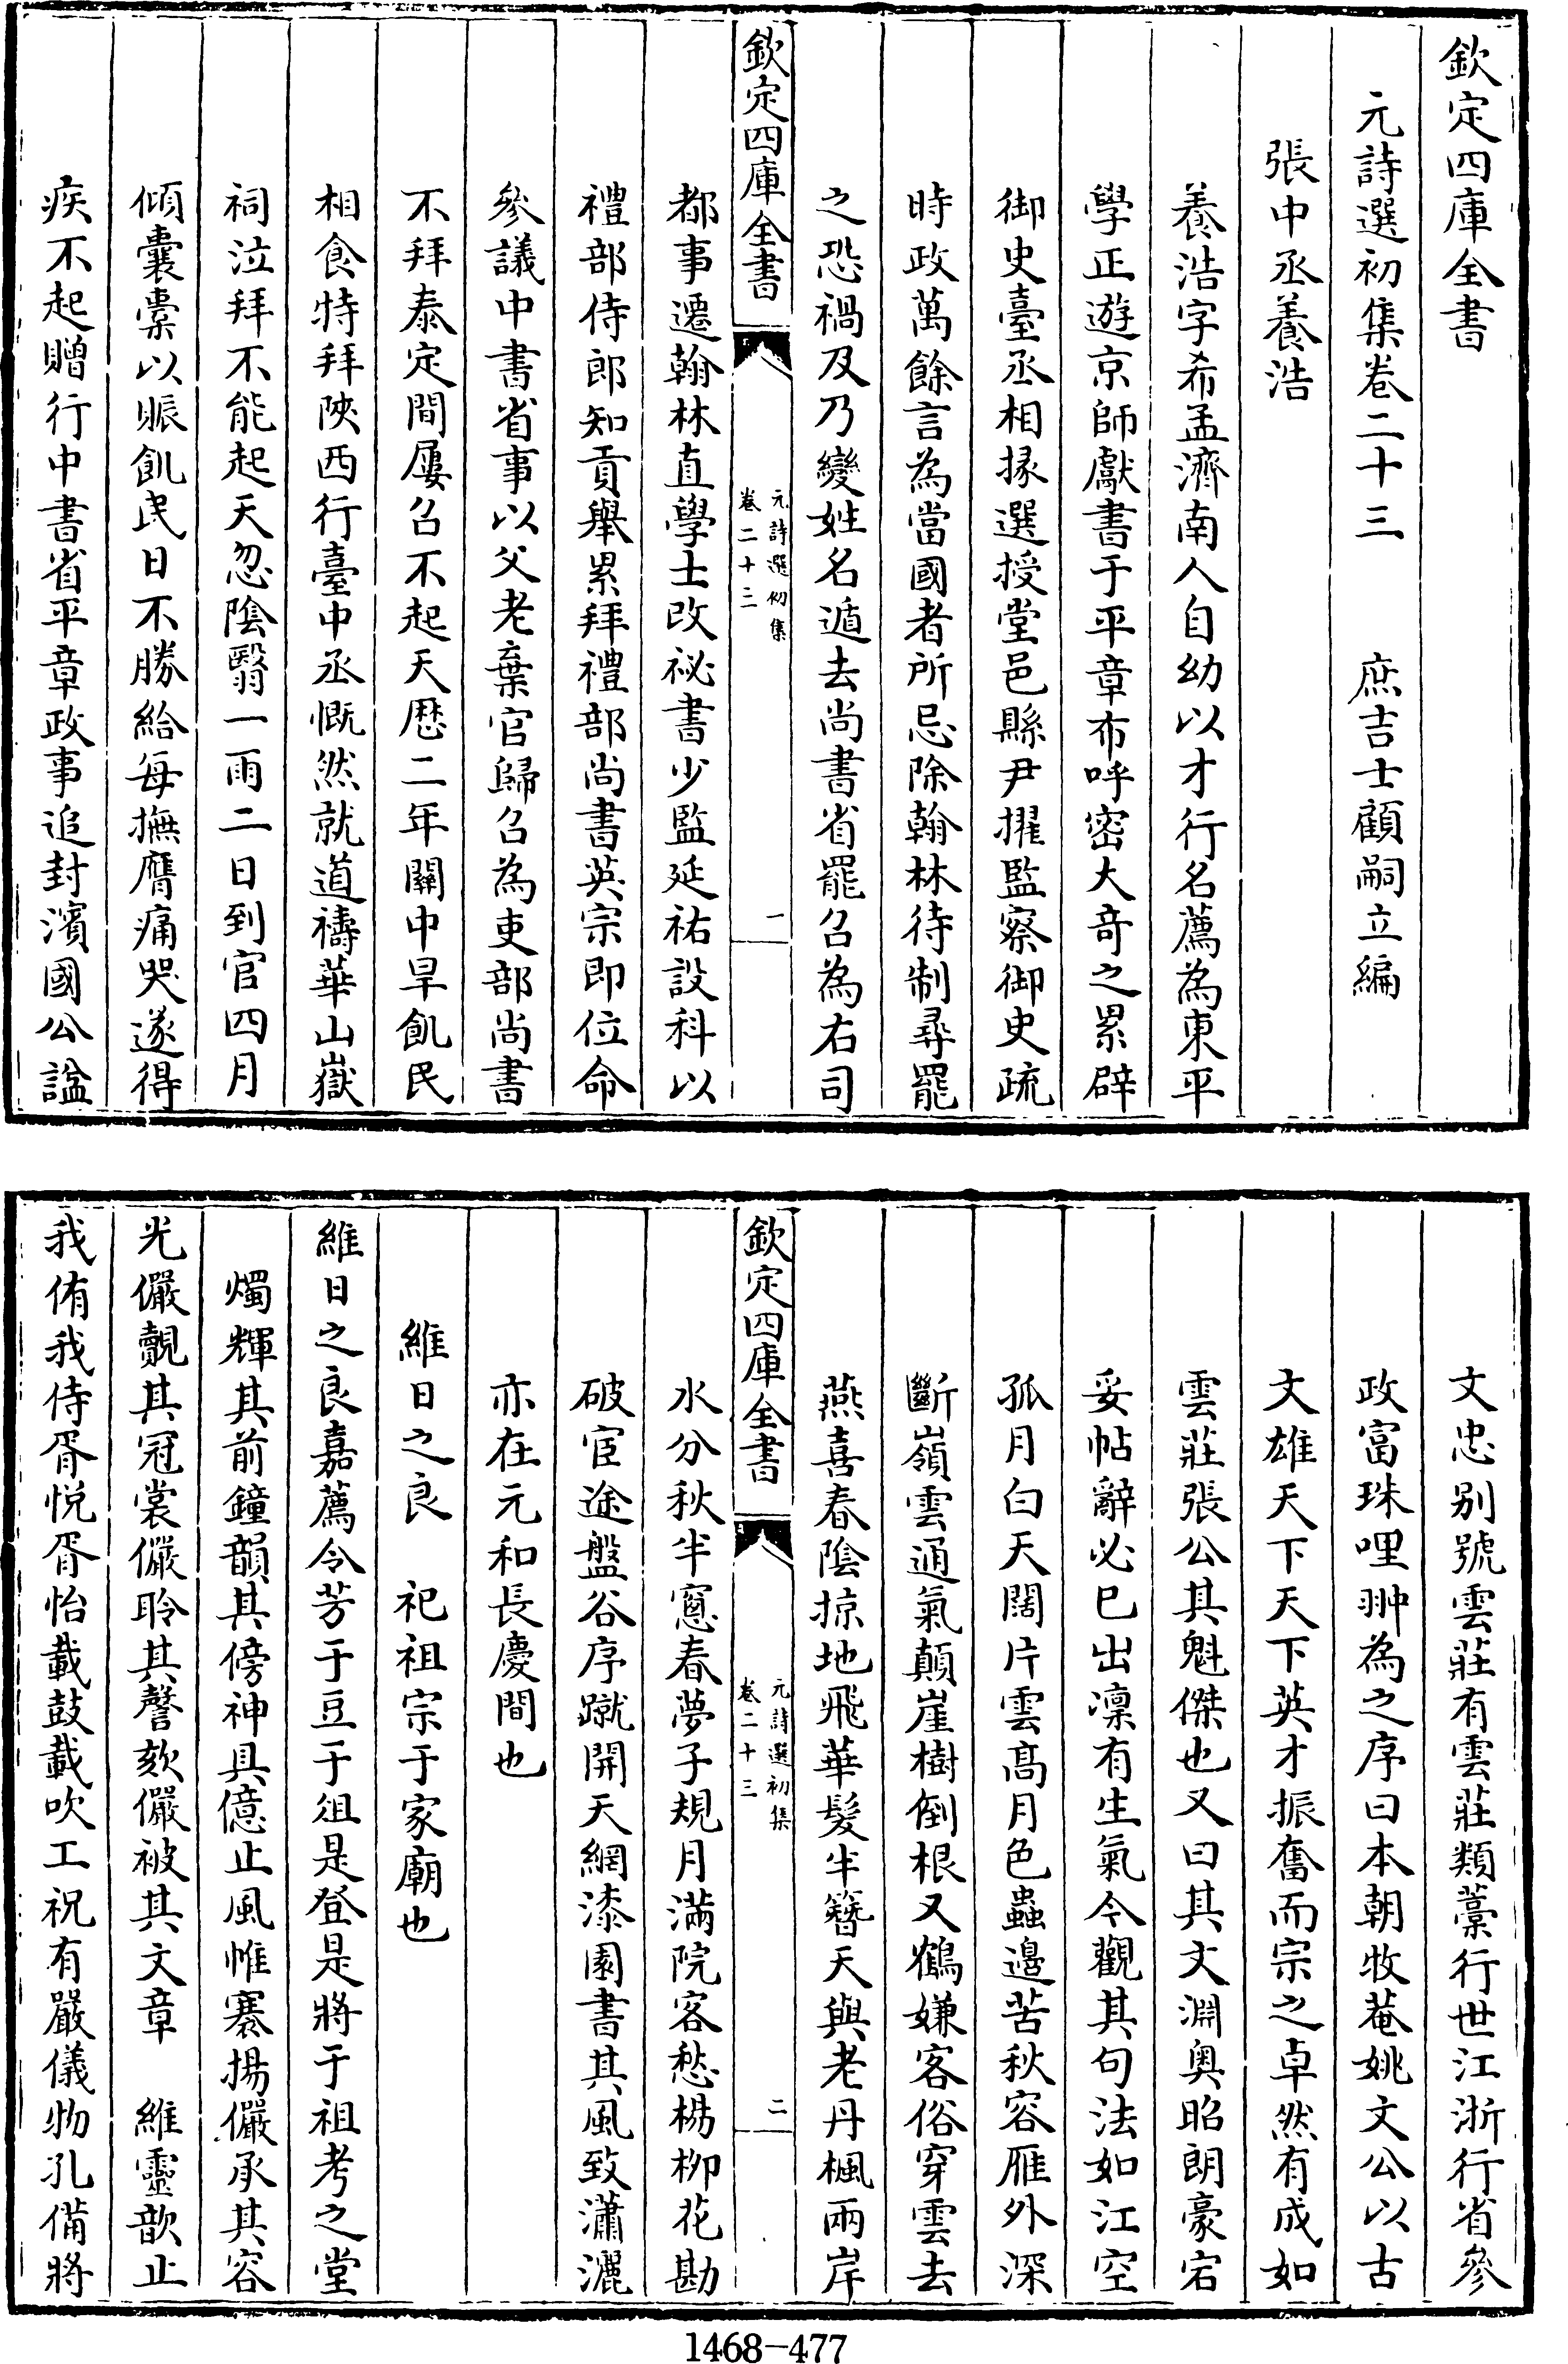 欽定四庫全書
元詩選初集卷二十三　庶吉士顧嗣立編
張中丞養浩
養浩字希孟濟南人自幼以才行名薦為東平
學正遊京師獻書于平章布呼密大竒之累辟
御史臺丞相掾選授堂邑縣尹擢監察御史疏
時政萬餘言為當國者所忌除翰林待制尋罷
之恐禍及乃變姓名遁去尚書省罷召為右司
欽定四庫全書
元詩選初集
卷二十三
一
都事遷翰林直學士改祕書少監延祐設科以
禮部侍郎知貢舉累拜禮部尚書英宗即位命
參議中書省事以父老棄官歸召為吏部尚書
不拜泰定間屢召不起天厯二年關中旱飢民
相食特拜陜西行臺中丞慨然就道禱華山嶽
祠泣拜不能起天忽陰翳一雨二日到官四月
傾囊橐以賑飢民日不勝給每撫膺痛哭遂得
疾不起贈行中書省平章政事追封濱國公諡
文忠别號雲莊有雲莊類藁行世江浙行省參
政富珠哩翀為之序曰本朝牧菴姚文公以古
文雄天下天下英才振奮而宗之卓然有成如
雲莊張公其魁傑也又曰其文淵奥昭朗豪宕
妥帖辭必已出凜有生氣今觀其句法如江空
孤月白天闊片雲髙月色蟲邉苦秋容雁外深
斷嶺雲通氣顛崖樹倒根又鶴嫌客俗穿雲去
燕喜春陰掠地飛華髮半簪天與老丹楓兩岸
欽定四庫全書
元詩選初集
卷二十三
二
水分秋半窻春夢子規月滿院客愁楊柳花勘
破宦途盤谷序蹴開天網漆園書其風致瀟灑
亦在元和長慶間也
維日之良　祀祖宗于家廟也
維日之良嘉薦令芳于豆于俎是登是將于祖考之堂
燭輝其前鐘韻其傍神具億止風帷褰揚儼承其容
光儼覿其冠裳儼聆其謦欬儼被其文章　維靈歆止
我侑我侍胥悦胥怡載鼓載吹工祝有嚴儀物孔備將
1468-477